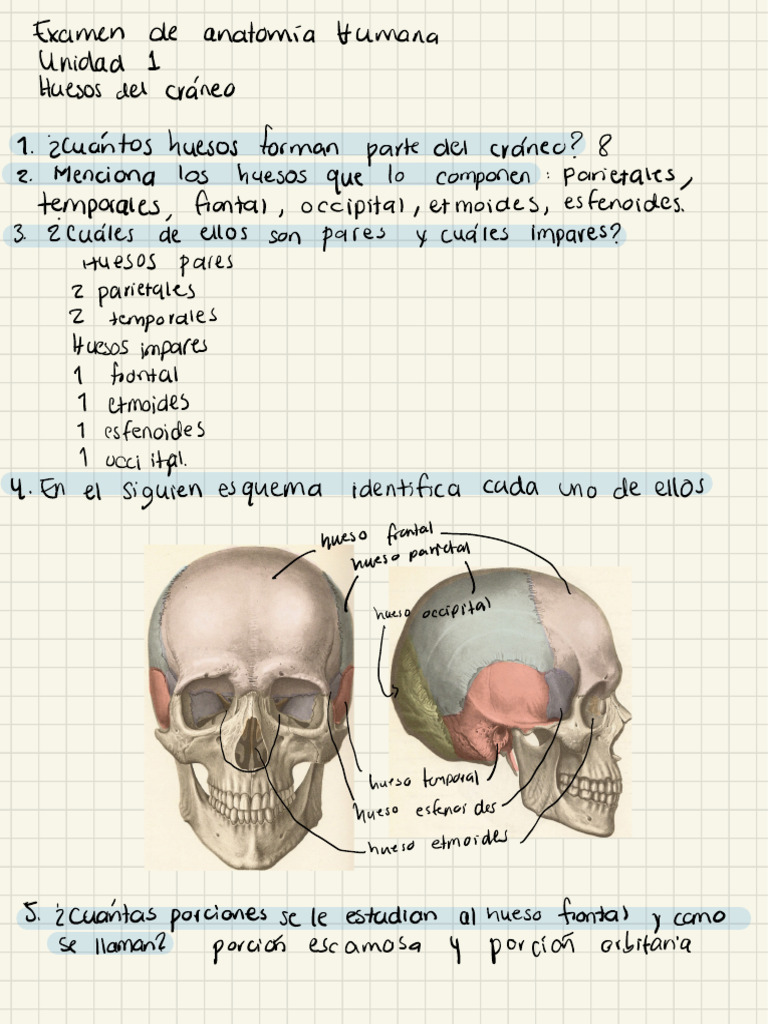 Examen de anatomía Humana
Unidad 1
Huesos del cráneo
1. ¿Cuántos huesos forman parte del cráneo? 8
2. Menciona los huesos que lo componen: Parietales,
temporales, frontal, occipital, etmoides, esfenoides.
3. ¿Cuáles de ellos son pares y cuáles impares?
Huesos pares
2 parietales
2 temporales
Huesos impares
1 frontal
1 etmoides
1 esfenoides
1 occi ital.
4. En el siguien esquema identifica cada uno de ellos
hueso frontal
hueso parietal
hueso occipital
hueso temporal
hueso esfenoides
hueso etmoides
5. ¿Cuántas porciones se le estudian al hueso frontal y como
se llaman? porción escamosa y porción orbitaria